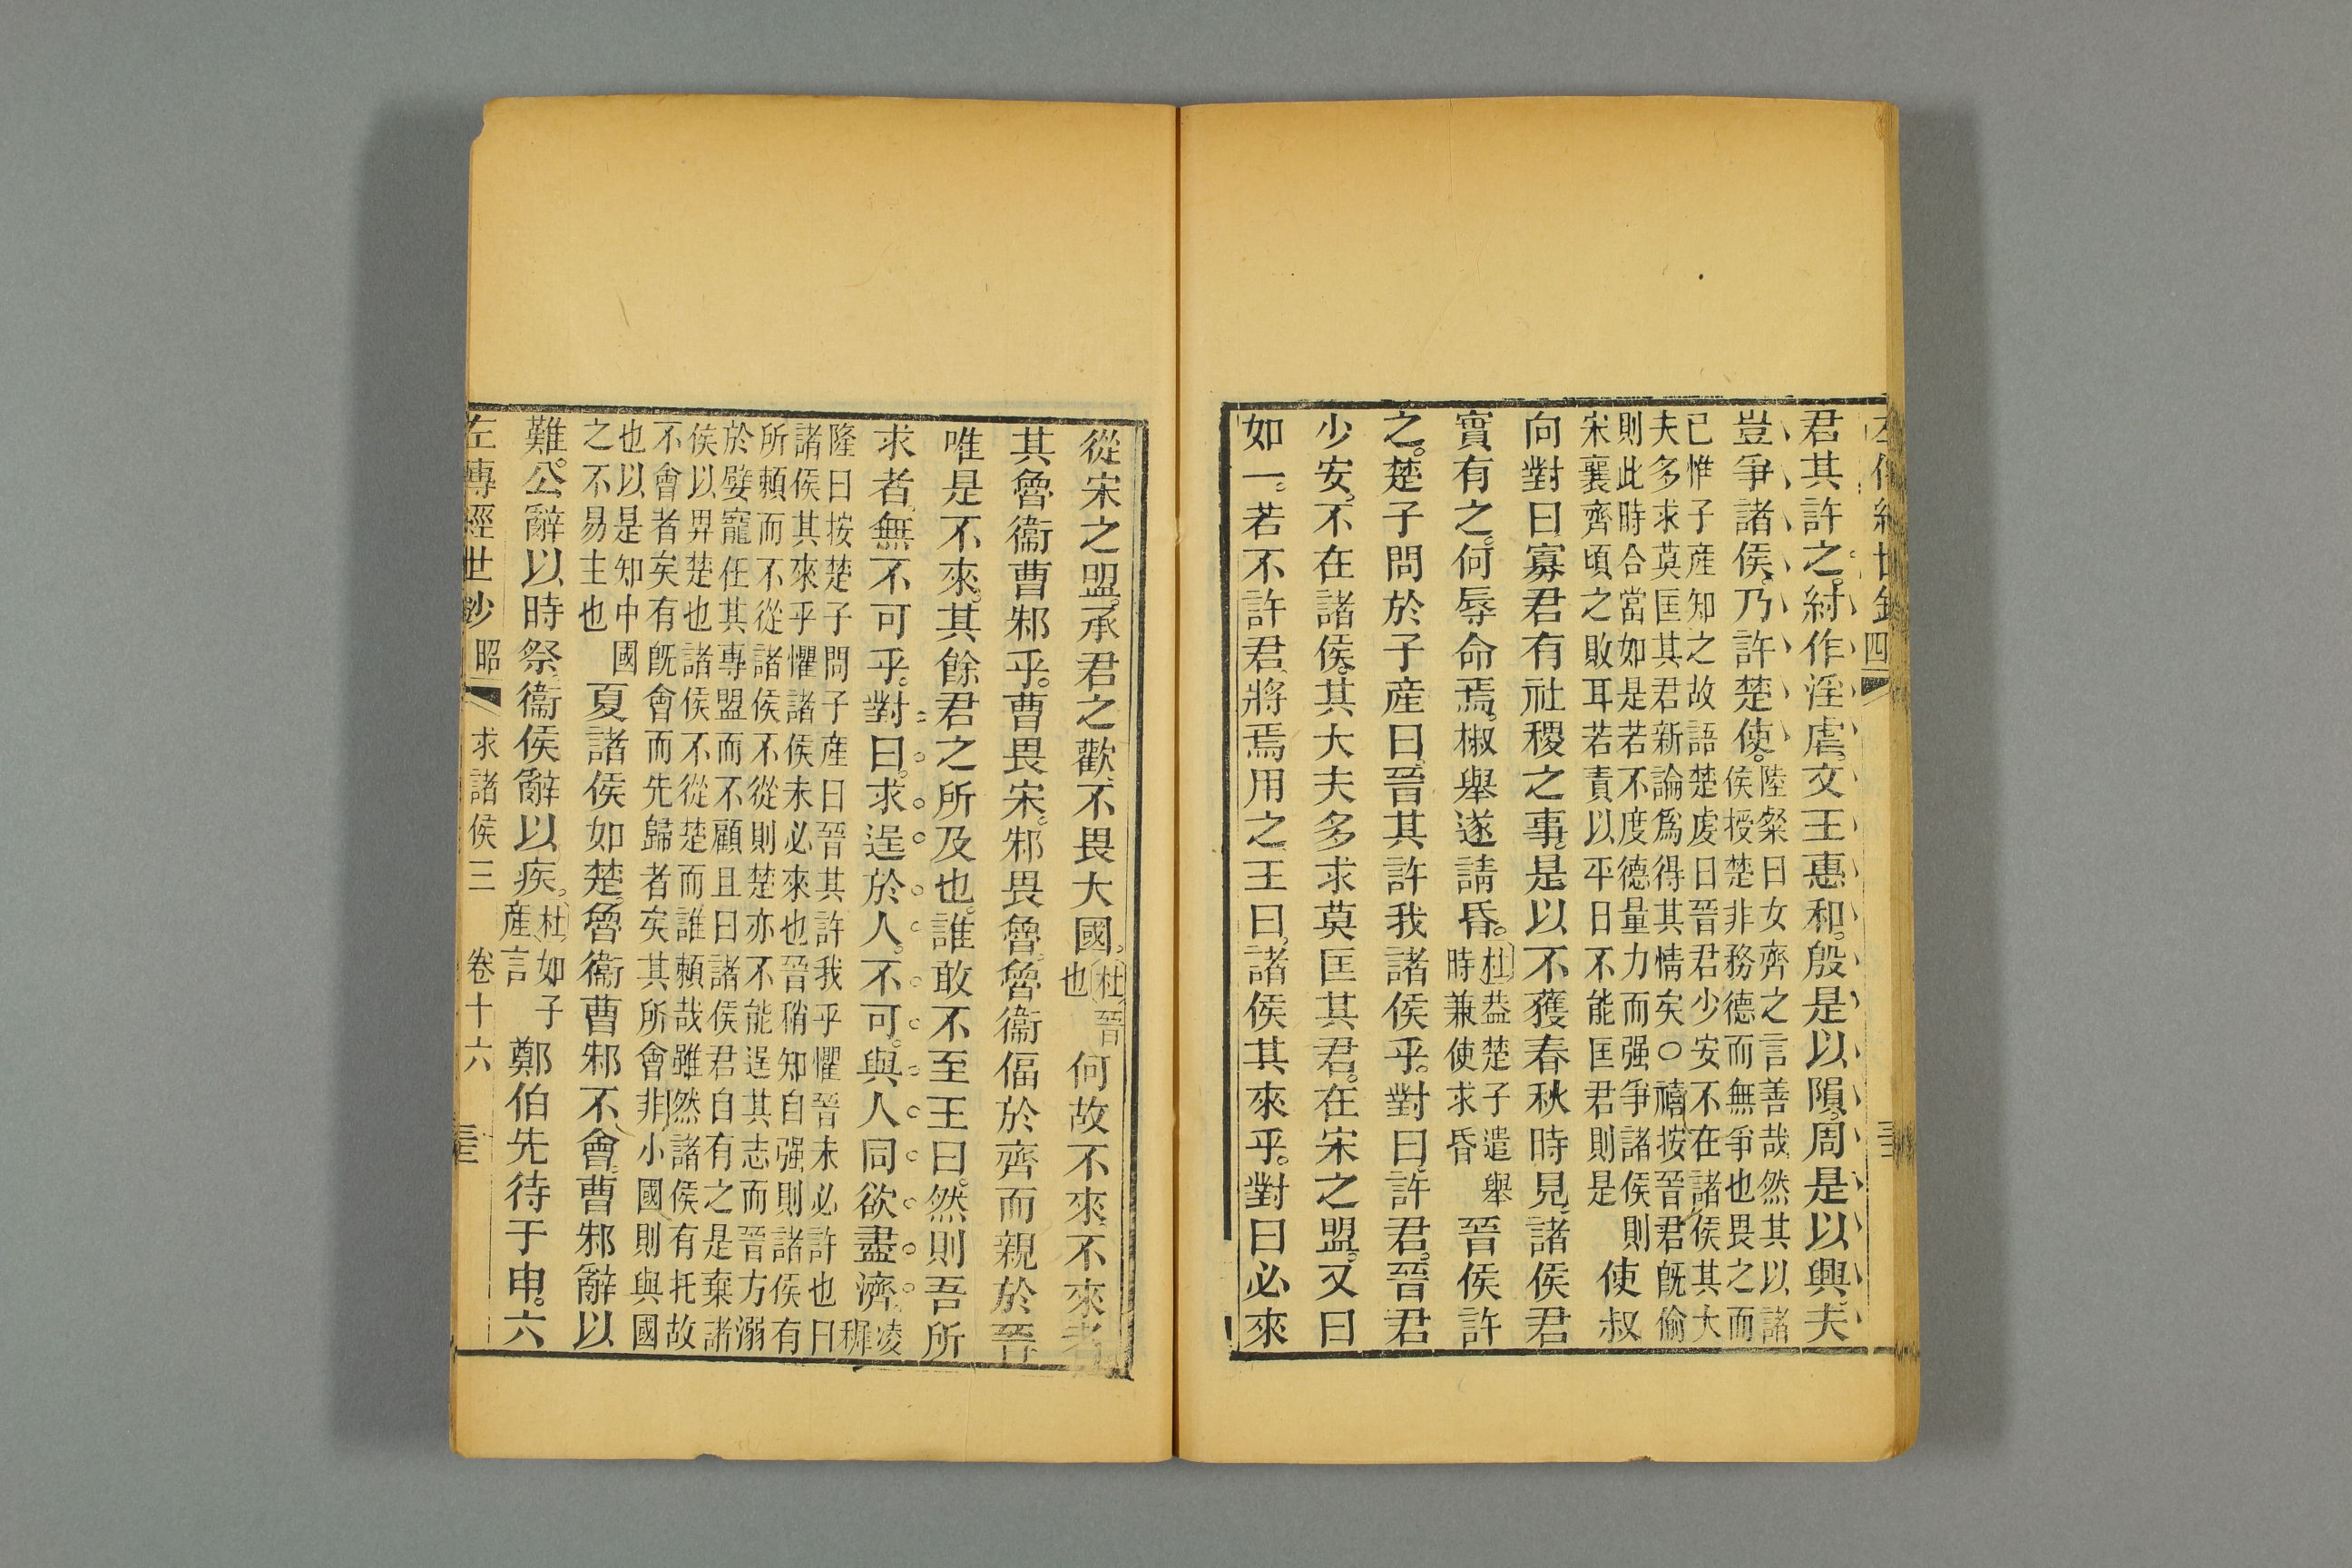 君其許之。紂作淫虐。文王惠和。殷是以隕。周是以興。夫
豈爭諸侯。乃許楚使。
陸粲曰女齊之言善哉然其以諸
侯授楚非務德而無爭也畏之而
已惟子産知之故語楚虔曰晉君少安不在諸侯其大
夫多求莫匡其君新論爲得其情矣〇禧按晉君旣偷
則此時合當如是若不度德量力而强爭諸侯則
宋襄齊頃之敗耳若責以平日不能匡君則是
使叔
向對曰寡君有社稷之事。是以不獲春秋時見。諸侯君
實有之。何辱命焉。椒舉遂請昏。
杜益楚子遣舉
時兼使求昏
晉侯許
之。楚子問於子産曰。晉其許我諸侯乎。對曰。許君。晉君
少安。不在諸侯。其大夫多求莫匡其君。在宋之盟。又曰
如一。若不許君。將焉用之王曰。諸侯其來乎。對曰必來
從宋之盟。承君之歡。不畏大國。
杜晉
也
何故不來。不來者
其魯衞曹邾乎。曹畏宋。邾畏魯。魯衞偪於齊而親於晉
唯是不來。其餘君之所及也。誰敢不至王曰。然則吾所
求者。無不可乎。對曰。求逞於人。不可。與人同欲盡濟。
凌
穉
隆曰按楚子問子産曰晉其許我乎懼晉未必許也曰
諸侯其來乎懼諸侯未必來也晉稍知自强則諸侯有
所賴而不從諸侯不從則楚亦不能逞其志而晉方溺
於嬖寵任其專盟而不顧且曰諸侯君自有之是棄諸
侯以畀楚也諸侯不從楚而誰賴哉雖然諸侯有托故
不會者矣有旣會而先歸者矣其所會非小國則與國
也以是知中國
之不易主也
夏諸侯如楚。魯衞曹邾不會。曹邾辭以
難。公辭以時祭。衞侯辭以疾。
杜如子
産言
鄭伯先待于申。六
左傳經世鈔 昭 求諸侯三 卷十六